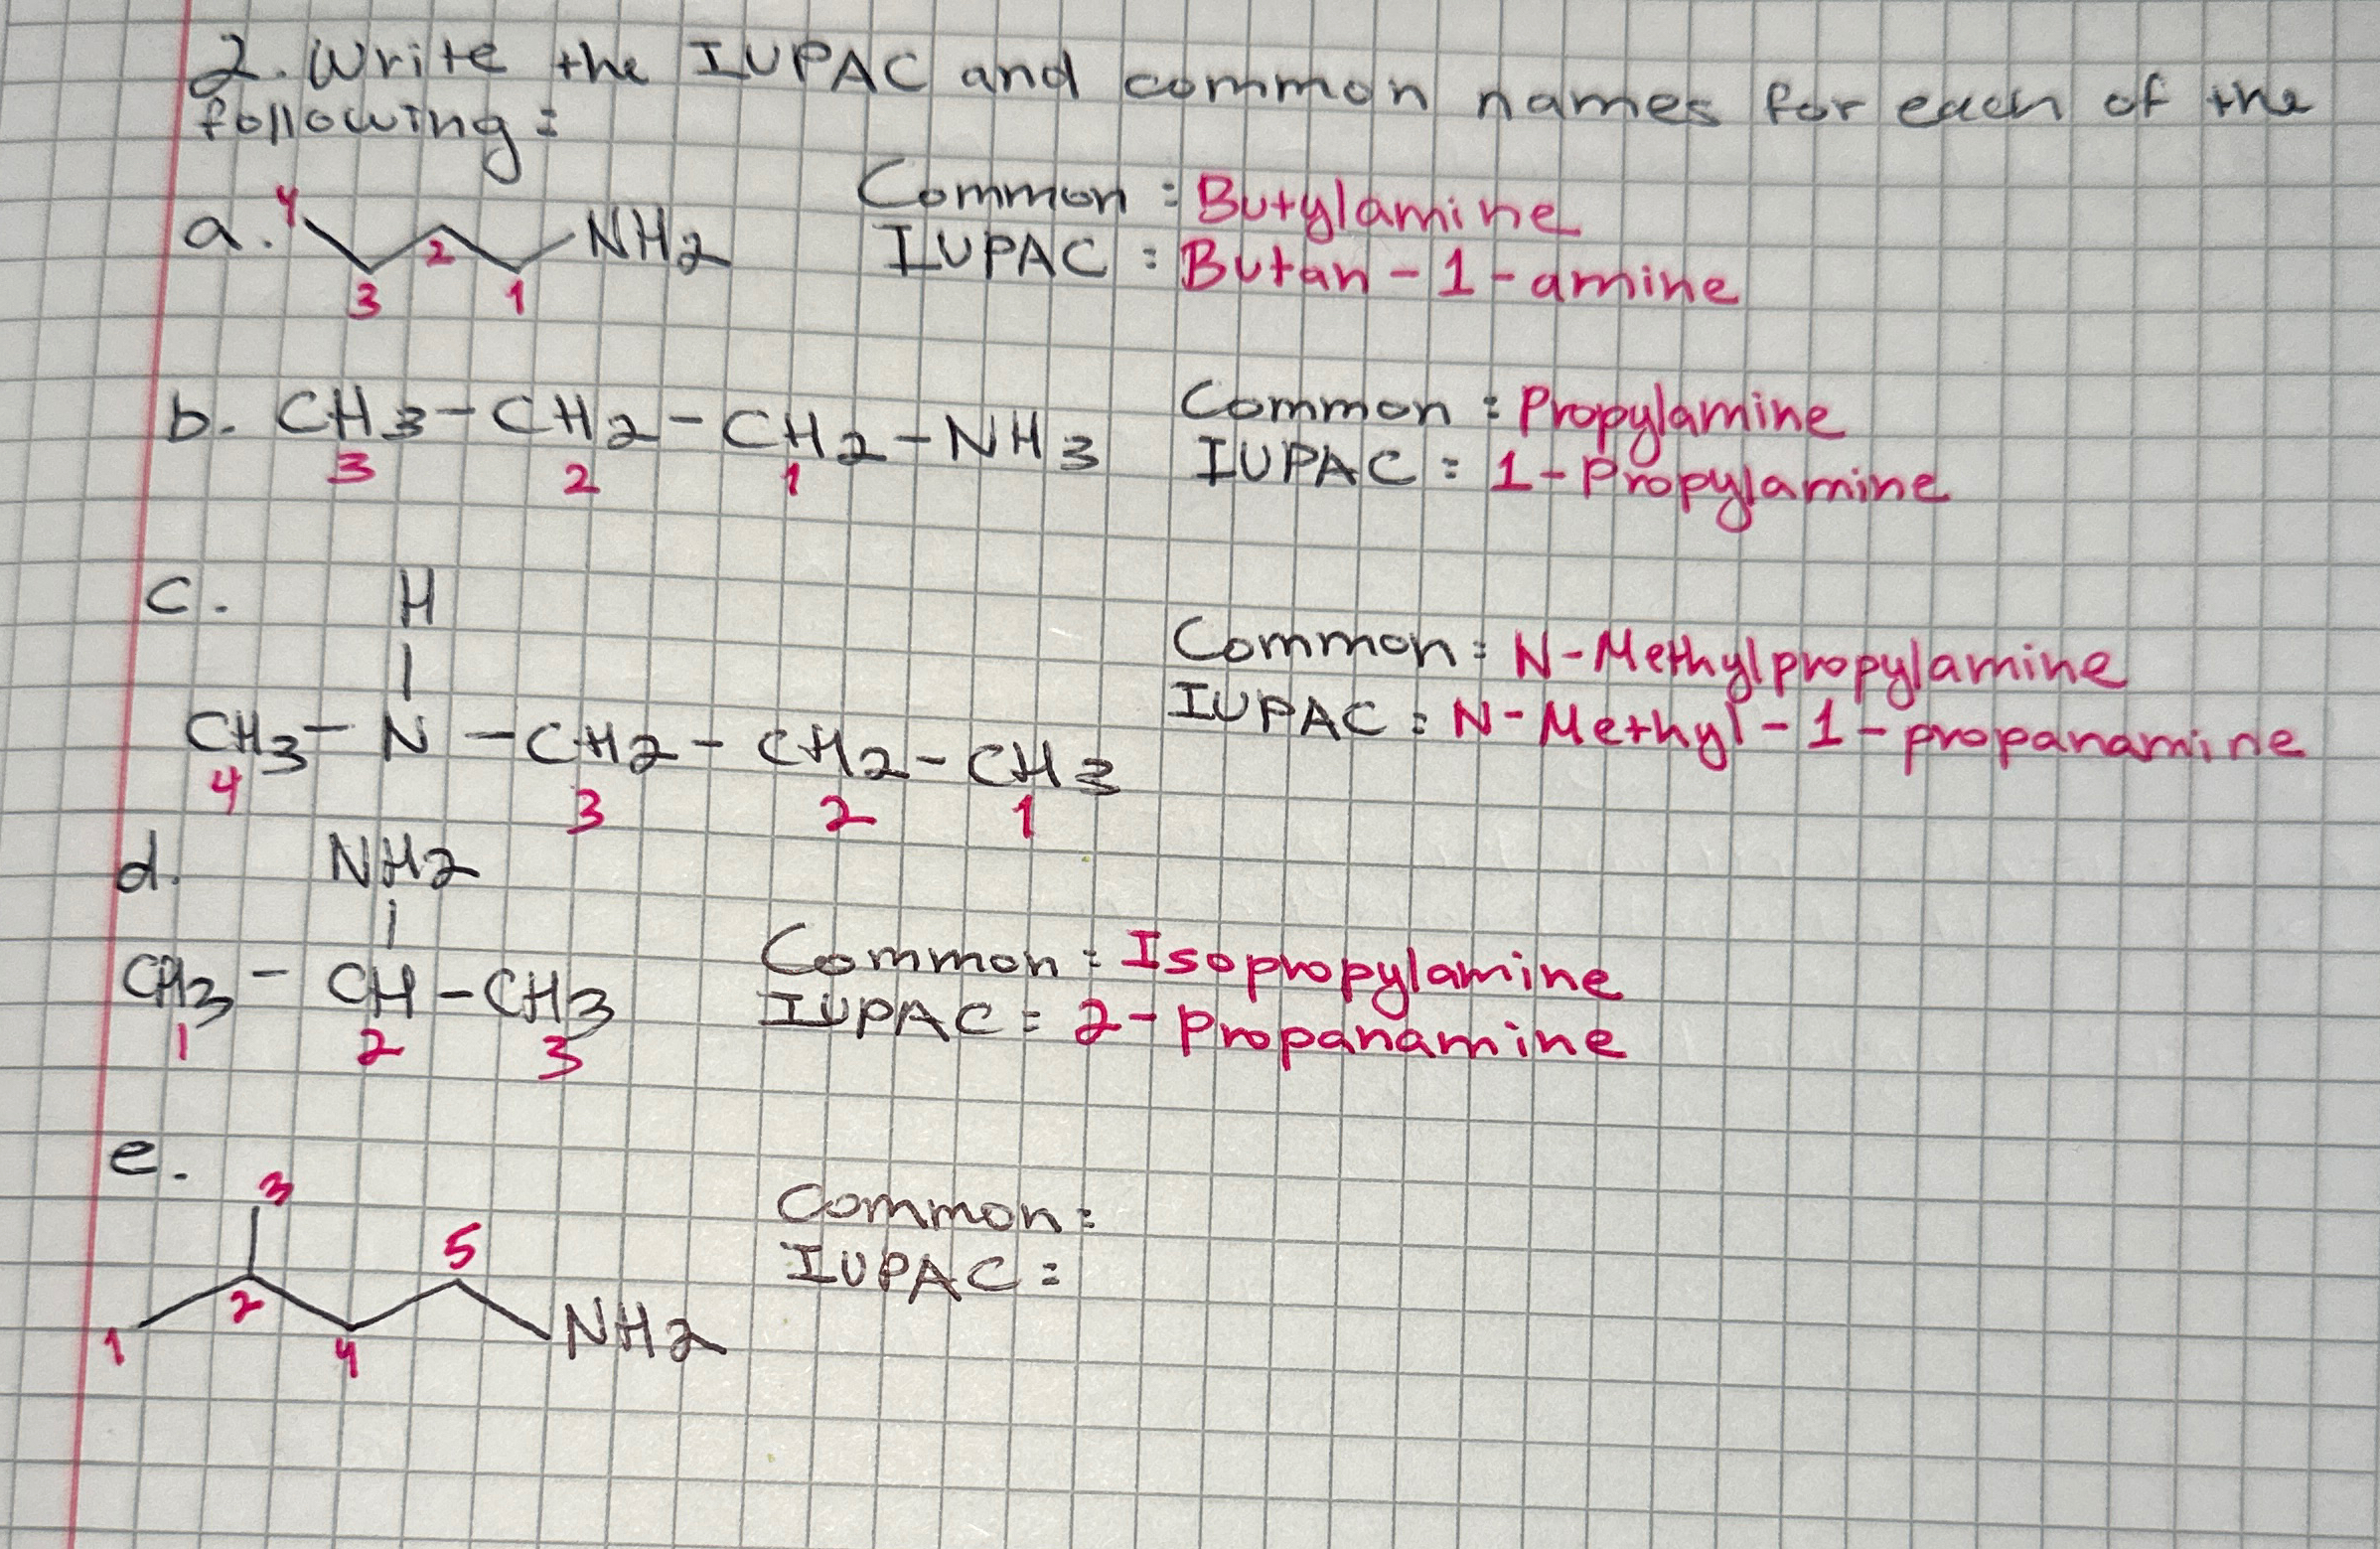 2. Write the IUPAC and common names for each of the
following:
a. 4 3 2 1 NH2
Common: Butylamine
IUPAC: Butan-1-amine
b. CH3-CH2-CH2-NH3
3 2 1
Common: Propylamine
IUPAC: 1-Propylamine
c. H
CH3-N-CH2-CH2-CH3
4 3 2 1
Common: N-Methylpropylamine
IUPAC: N-Methyl-1-propanamine
d. NH2
CH3-CH-CH3
1 2 3
Common: Isopropylamine
IUPAC: 2-Propanamine
e.
3
5
2
1 4 NH2
Common:
IUPAC: